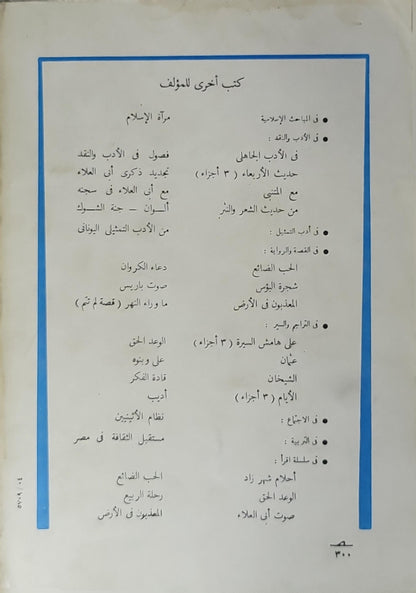 كتب أخرى للمؤلف
● فى المباحث الإسلامية مرآة الإسلام
● فى الأدب والنقد :
فى الأدب الجاهلى فصول فى الأدب والنقد
حديث الأربعاء ( ٣ أجزاء ) تجديد ذكرى أبى العلاء
مع المتنبى مع أبى العلاء فى سجنه
من حديث الشعر والنثر ألــوان – جنة الشــوك
● فى أدب التمثيل : من الأدب التمثيلى اليونانى
● فى القصة والرواية :
الحب الضائع دعاء الكروان
شجرة البؤس صوت باريس
المعذبون فى الأرض ما وراء النهر ( قصة لم تتم )
● فى التراجم والسير :
على هامش السيرة ( ٣ أجزاء ) الوعد الحق
عثمان على وبنوه
الشيخان قادة الفكر
الأيام ( ٣ أجزاء ) أديب
● فى الاجتماع : نظام الأثينيين
● فى التربية : مستقبل الثقافة فى مصر
● فى سلسلة اقرأ :
أحلام شهر زاد الحب الضائع
الوعد الحق رحلة الربيع
صوت أبى العلاء المعذبون فى الأرض
٣٠٠